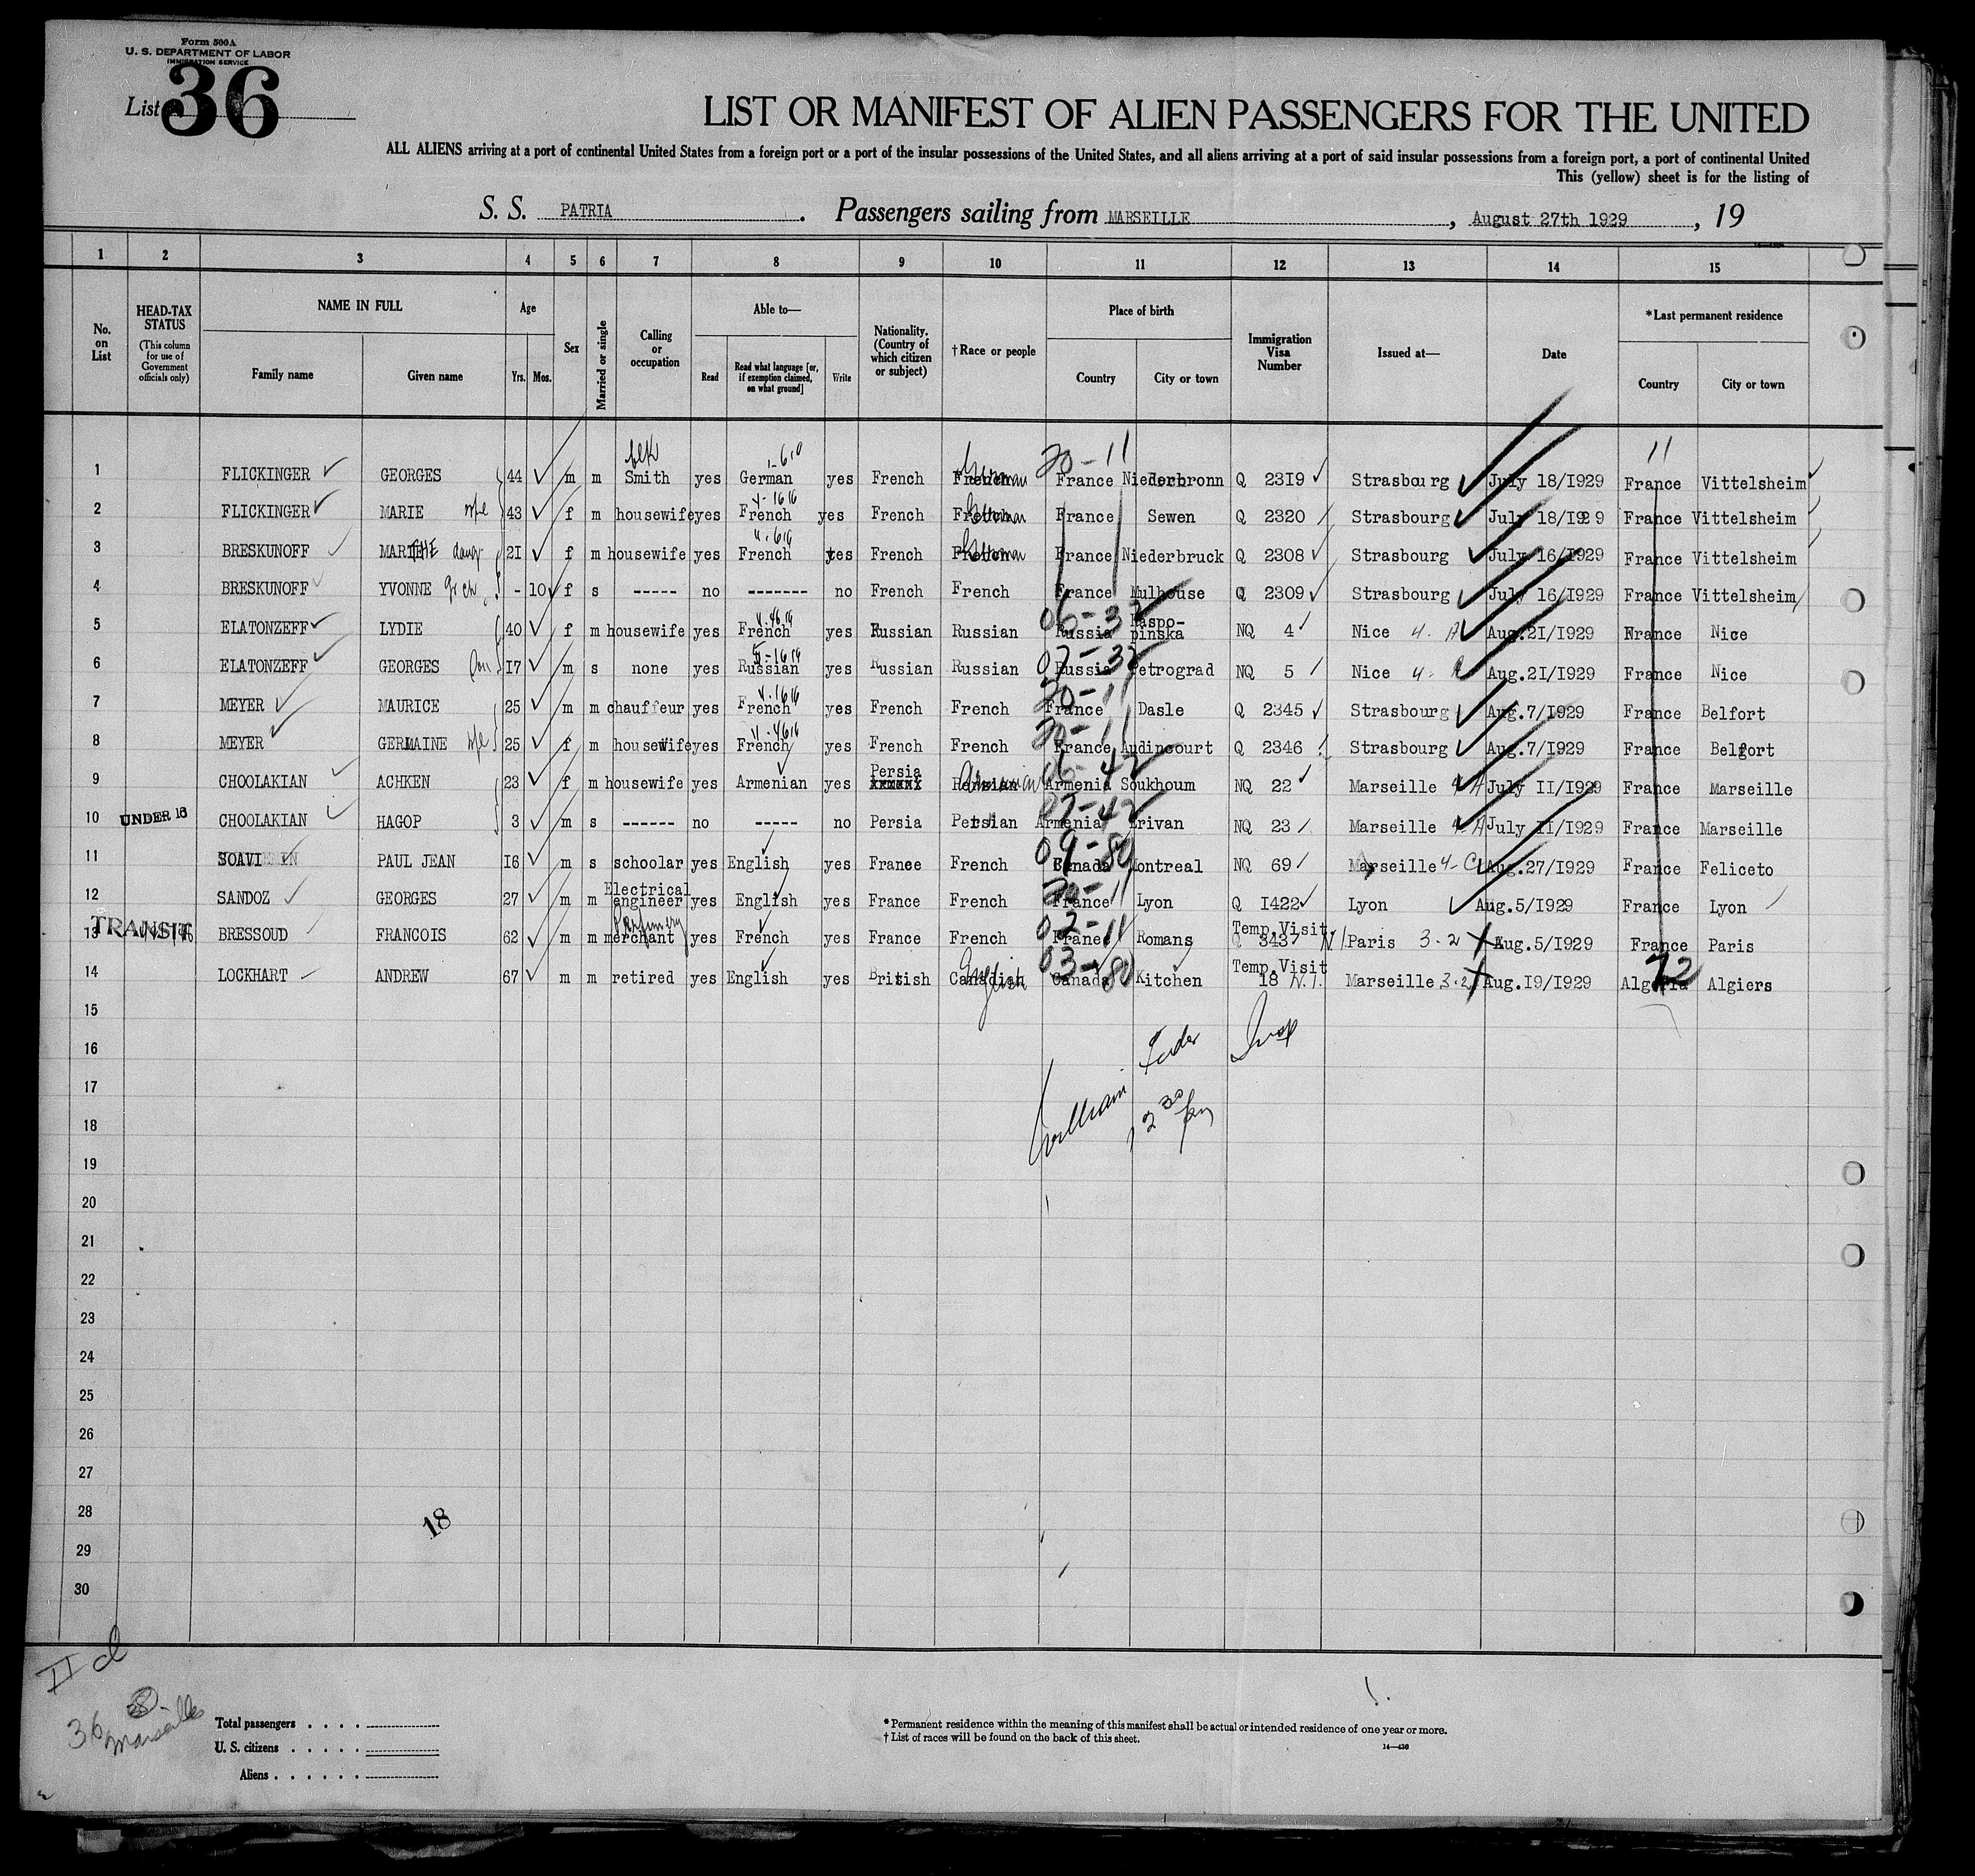 Form 500A
U. S. DEPARTMENT OF LABOR
IMMIGRATION SERVICE
List 36
LIST OR MANIFEST OF ALIEN PASSENGERS FOR THE UNITED
ALL ALIENS arriving at a port of continental United States from a foreign port or a port of the insular possessions of the United States, and all aliens arriving at a port of said insular possessions from a foreign port, a port of continental United
This (yellow) sheet is for the listing of
S. S. PATRIA. Passengers sailing from MARSEILLE, August 27th 1929, 19
1 2 3 4 5 6 7 8 9 10 11 12 13 14 15
No. on List
HEAD-TAX STATUS (This column for use of Government officials only)
NAME IN FULL Family name Given name
Age Yrs. Mos.
Sex
Married or single
Calling or occupation
Able to— Read Read what language [or, if exemption claimed, on what ground] Write
Nationality. (Country of which citizen or subject)
†Race or people
Place of birth Country City or town
Immigration Visa Number
Issued at—
Date
*Last permanent residence Country City or town
1 FLICKINGER GEORGES 44 m m blk Smith yes German yes French German France Niederbronn Q 2319 Strasbourg July 18/1929 France Vittelsheim
2 FLICKINGER MARIE wfe 43 f m housewife yes French yes French German France Sewen Q 2320 Strasbourg July 18/1929 France Vittelsheim
3 BRESKUNOFF MARTHE daug 21 f m housewife yes French yes French German France Niederbruck Q 2308 Strasbourg July 16/1929 France Vittelsheim
4 BRESKUNOFF YVONNE gr ch - 10 f s ----- no ------- no French French France Mulhouse Q 2309 Strasbourg July 16/1929 France Vittelsheim
5 ELATONZEFF LYDIE 40 f m housewife yes French yes Russian Russian 06-3 Russia pinska NQ 4 Nice 4. A Aug.21/1929 France Nice
6 ELATONZEFF GEORGES Son 17 m s none yes Russian yes Russian Russian Russia Petrograd NQ 5 Nice 4. Aug.21/1929 France Nice
7 MEYER MAURICE 25 m m chauffeur yes French yes French French 20-11 France Dasle Q 2345 Strasbourg Aug.7/1929 France Belfort
8 MEYER GERMAINE wfe 25 f m housewife yes French yes French French 20-11 France Audincourt Q 2346 Strasbourg Aug.7/1929 France Belfort
9 CHOOLAKIAN ACHKEN 23 f m housewife yes Armenian yes Persia Armenian Armenia Soukhoum NQ 22 Marseille 4 A July 11/1929 France Marseille
10 UNDER 16 CHOOLAKIAN HAGOP 3 m s ------ no ----- no Persia Persian 07-42 Armenia Erivan NQ 23 Marseille 4. A July 11/1929 France Marseille
11 SOAVI PAUL JEAN 16 m s schoolar yes English yes France French 09-80 Canada Montreal NQ 69 Marseille 4-C Aug.27/1929 France Feliceto
12 SANDOZ GEORGES 27 m m Electrical engineer yes English yes France French 20-11 France Lyon Q 1422 Lyon Aug.5/1929 France Lyon
13 TRANSIT BRESSOUD FRANCOIS 62 m m Perfumery merchant yes French yes France French 02-11 France Romans Temp.Visit. 343 Paris 3-2 Aug.5/1929 France Paris
14 LOCKHART ANDREW 67 m m retired yes English yes British English 03-80 Canada Kitchen Temp.Visit 18 N.I. Marseille 3-2 Aug.19/1929 72 Algeria Algiers
15
16
17
18
19
20
21
22
23
24
25
26
27
28
29
30
William
Insp
18
II cl
36 Marseilles
Total passengers . . . .
U. S. citizens . . . . .
Aliens . . . . . .
* Permanent residence within the meaning of this manifest shall be actual or intended residence of one year or more.
† List of races will be found on the back of this sheet.
14—436